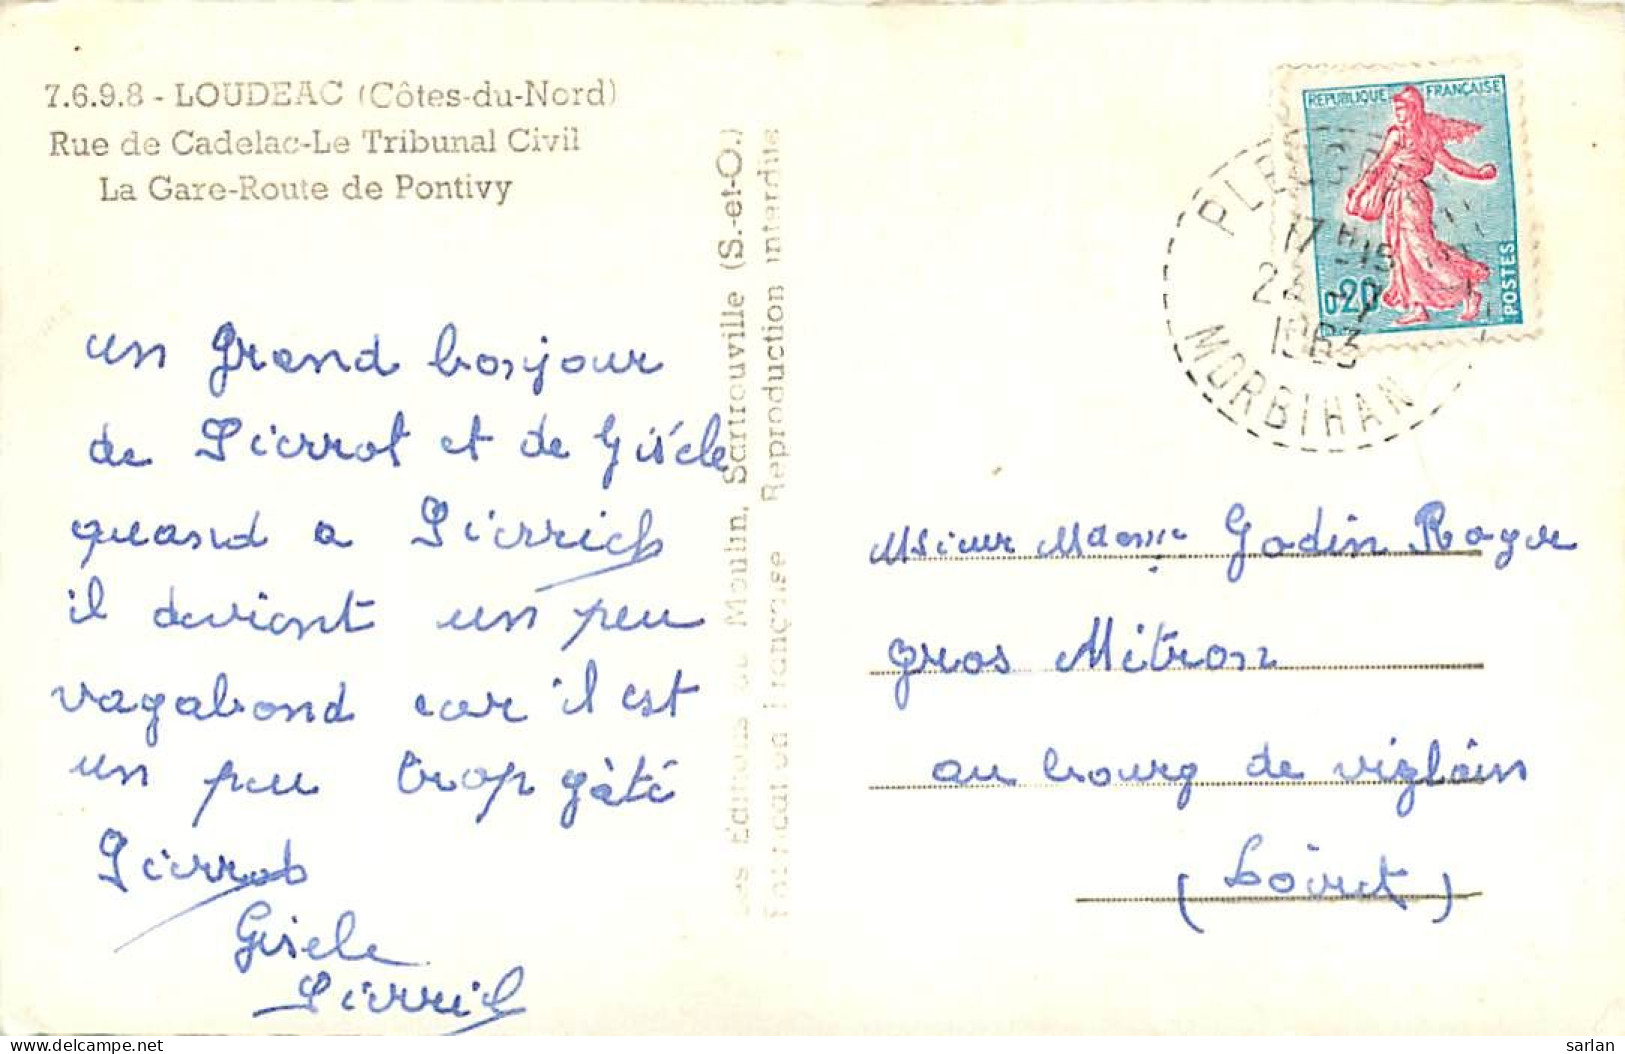 7.6.9.8 - LOUDEAC (Côtes-du-Nord)
Rue de Cadelac-Le Tribunal Civil
La Gare-Route de Pontivy
un grand bonjour
de Pierrot et de Gisèle
quand a Pierrick
il devient un peu
vagabond car il est
un peu trop gâté
Pierrot
Gisele
Pierrick
Les Éditions du Moulin, Sartrouville (S.-et-O.)
Fabrication Française Reproduction interdite
REPUBLIQUE FRANÇAISE
0,20
POSTES
17 H 15
1963
MORBIHAN
Msieur Mdame Godin Roger
gros Mitron
au bourg de viglain
(Loiret)
sarlan